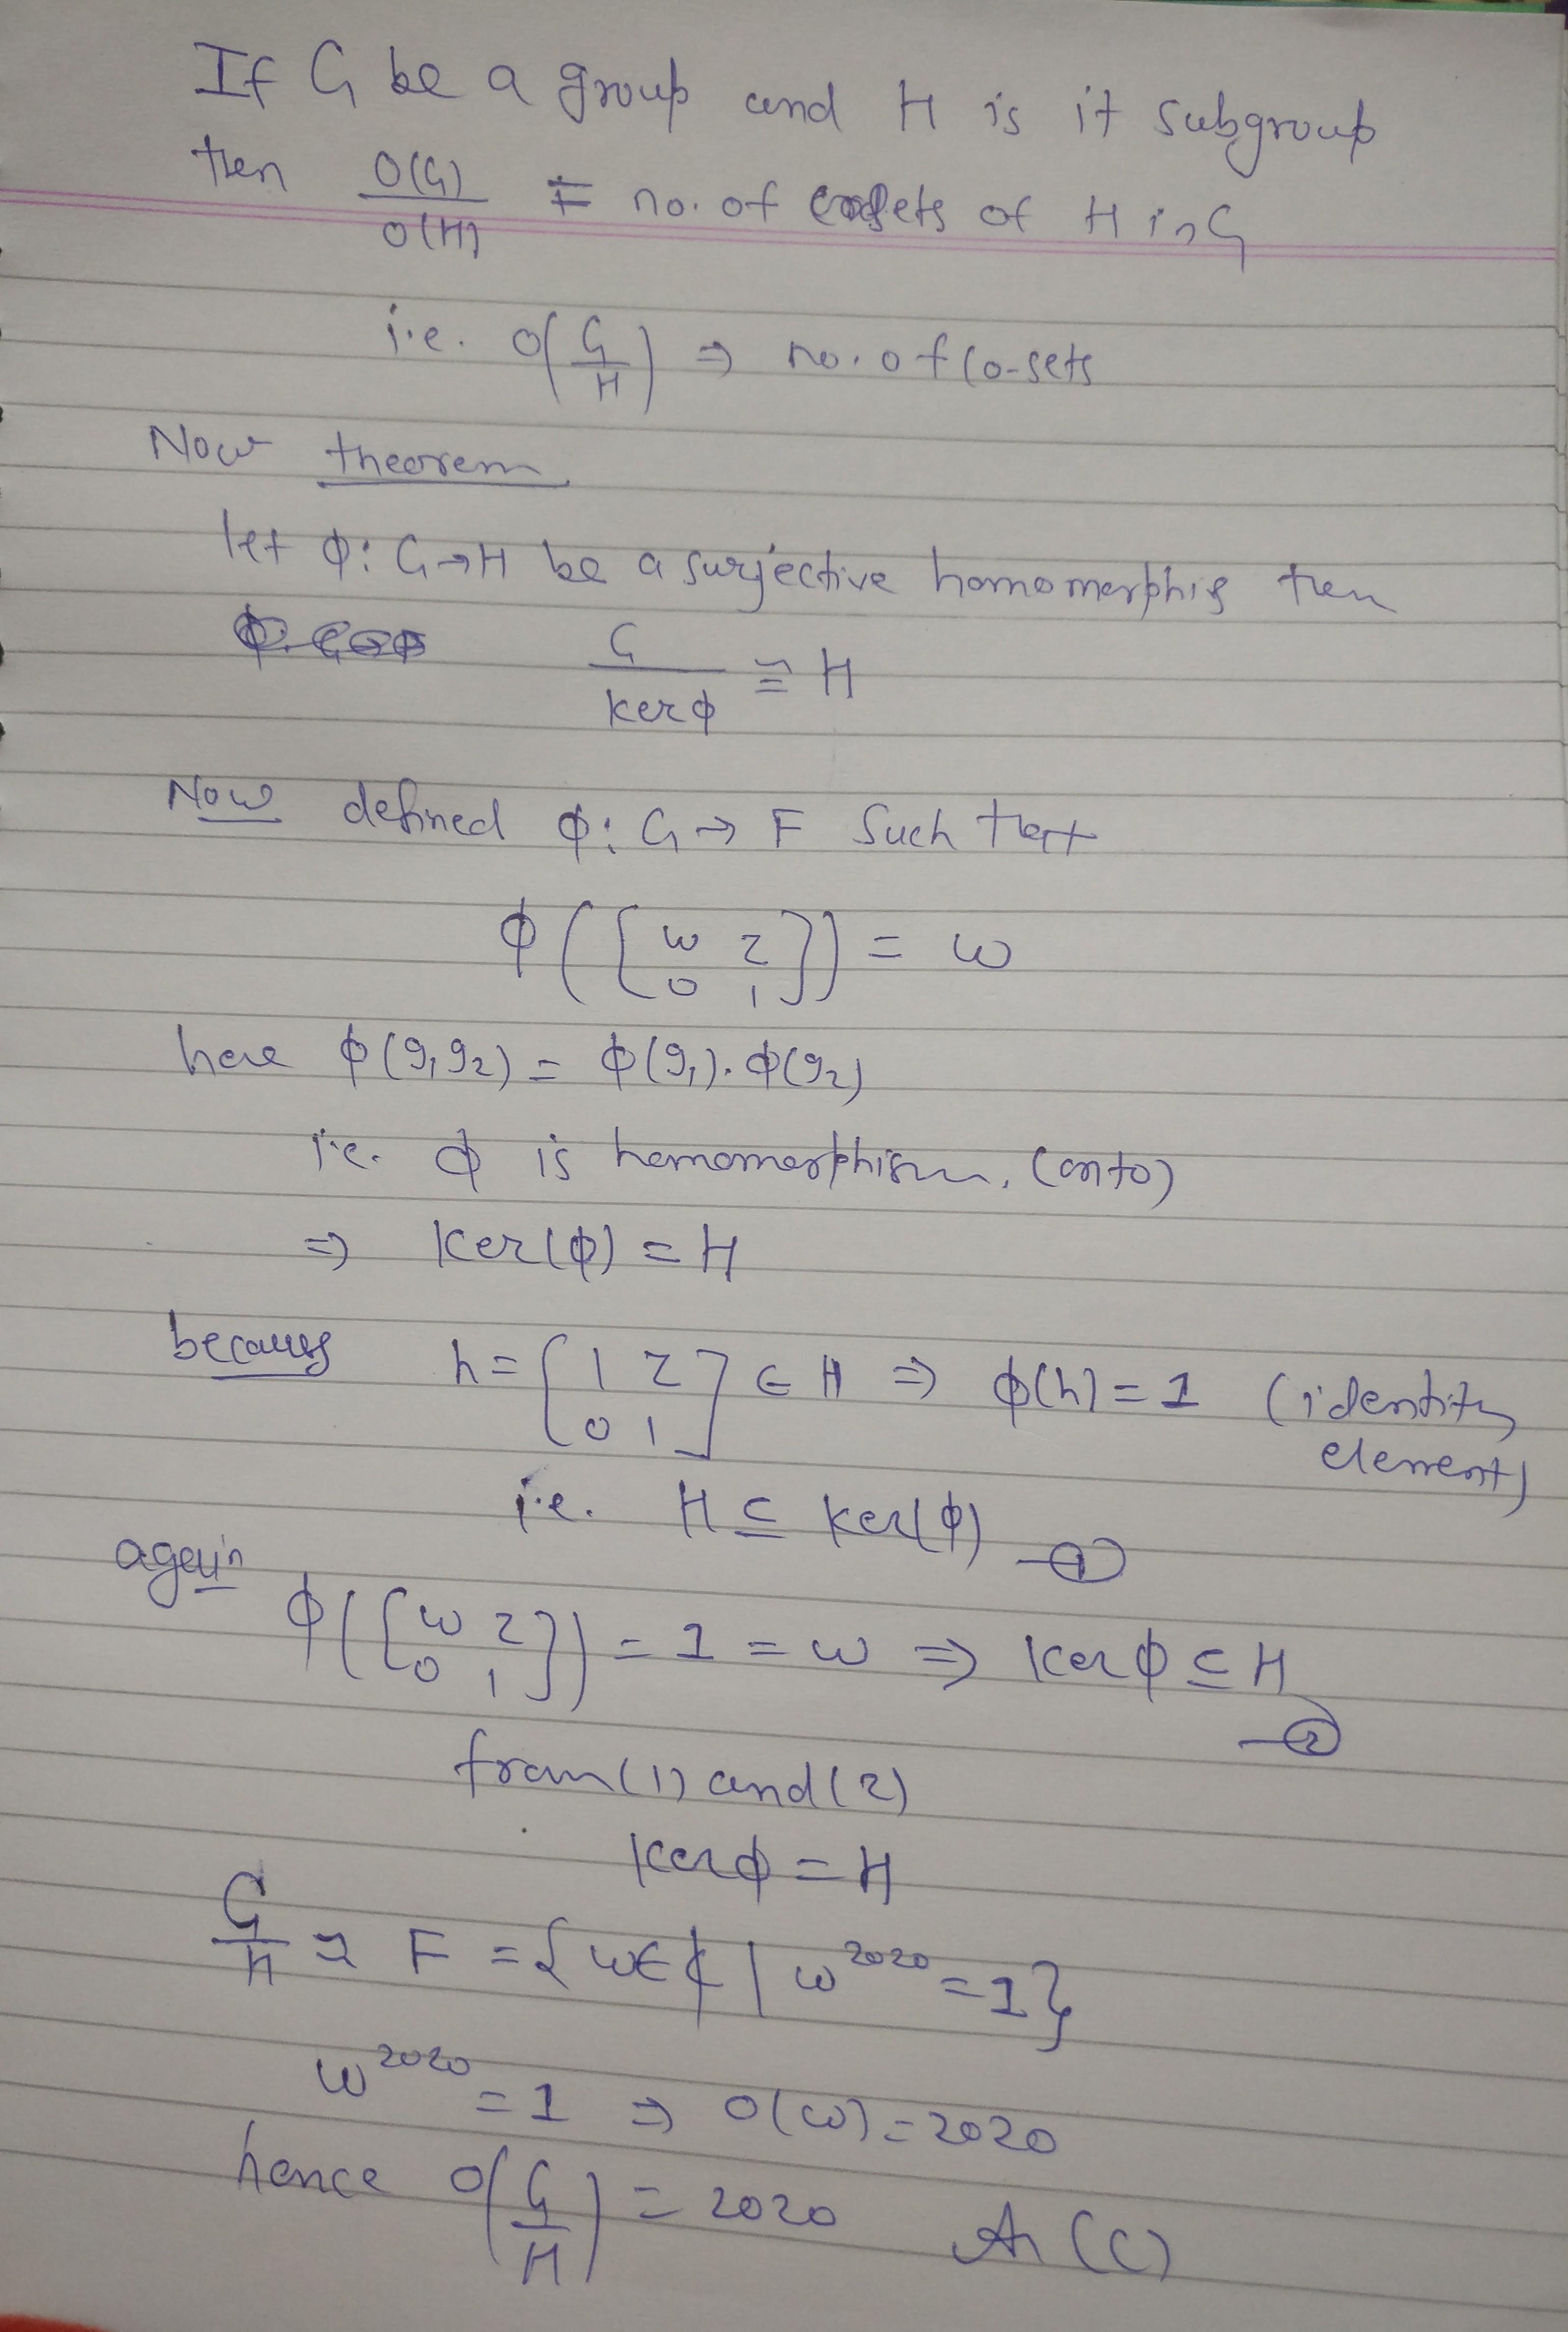 If G be a group and H is it subgroup
then O(G)/O(H) = no. of cosets of H in G
i.e. O(G/H) ⇒ no. of co-sets
Now theorem
let φ: G→H be a surjective homomorphis then
G/kerφ ≅ H
Now defined φ: G→ F such that
φ([w z; 0 1]) = w
here φ(g₁g₂) = φ(g₁).φ(g₂)
i.e. φ is homomorphism. (onto)
⇒ Ker(φ) = H
because h = [1 z; 0 1] ∈ H ⇒ φ(h) = 1 (identity
element)
i.e. H ⊆ Ker(φ) —①
again
φ([w z; 0 1]) = 1 = w ⇒ Kerφ ⊆ H
—②
from (1) and (2)
Kerφ = H
G/H ≅ F = {w∈ℂ | w²⁰²⁰ = 1}
w²⁰²⁰ = 1 ⇒ O(w) = 2020
hence O(G/H) = 2020 An (C)